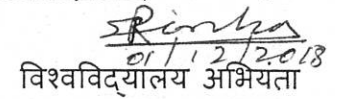 01/12/2018
विश्वविद्यालय अभियता